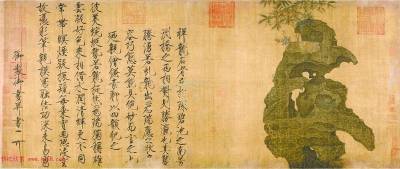 祥龍石者立於環碧池之南芳
洲橋之西相對則勝瀛也其勢
騰湧若虬龍出為瑞應之狀
奇容巧態莫能具絕妙而言之也
廼親繪縑素聊以四韻紀之
彼美蜿蜒勢若龍挺然為瑞獨稱雄
雲凝好色來相借水潤清輝更不同
常帶暝煙疑振鬣每乘宵雨恐凌空
故憑彩筆親模寫融結功深未易窮
御製御畫并書